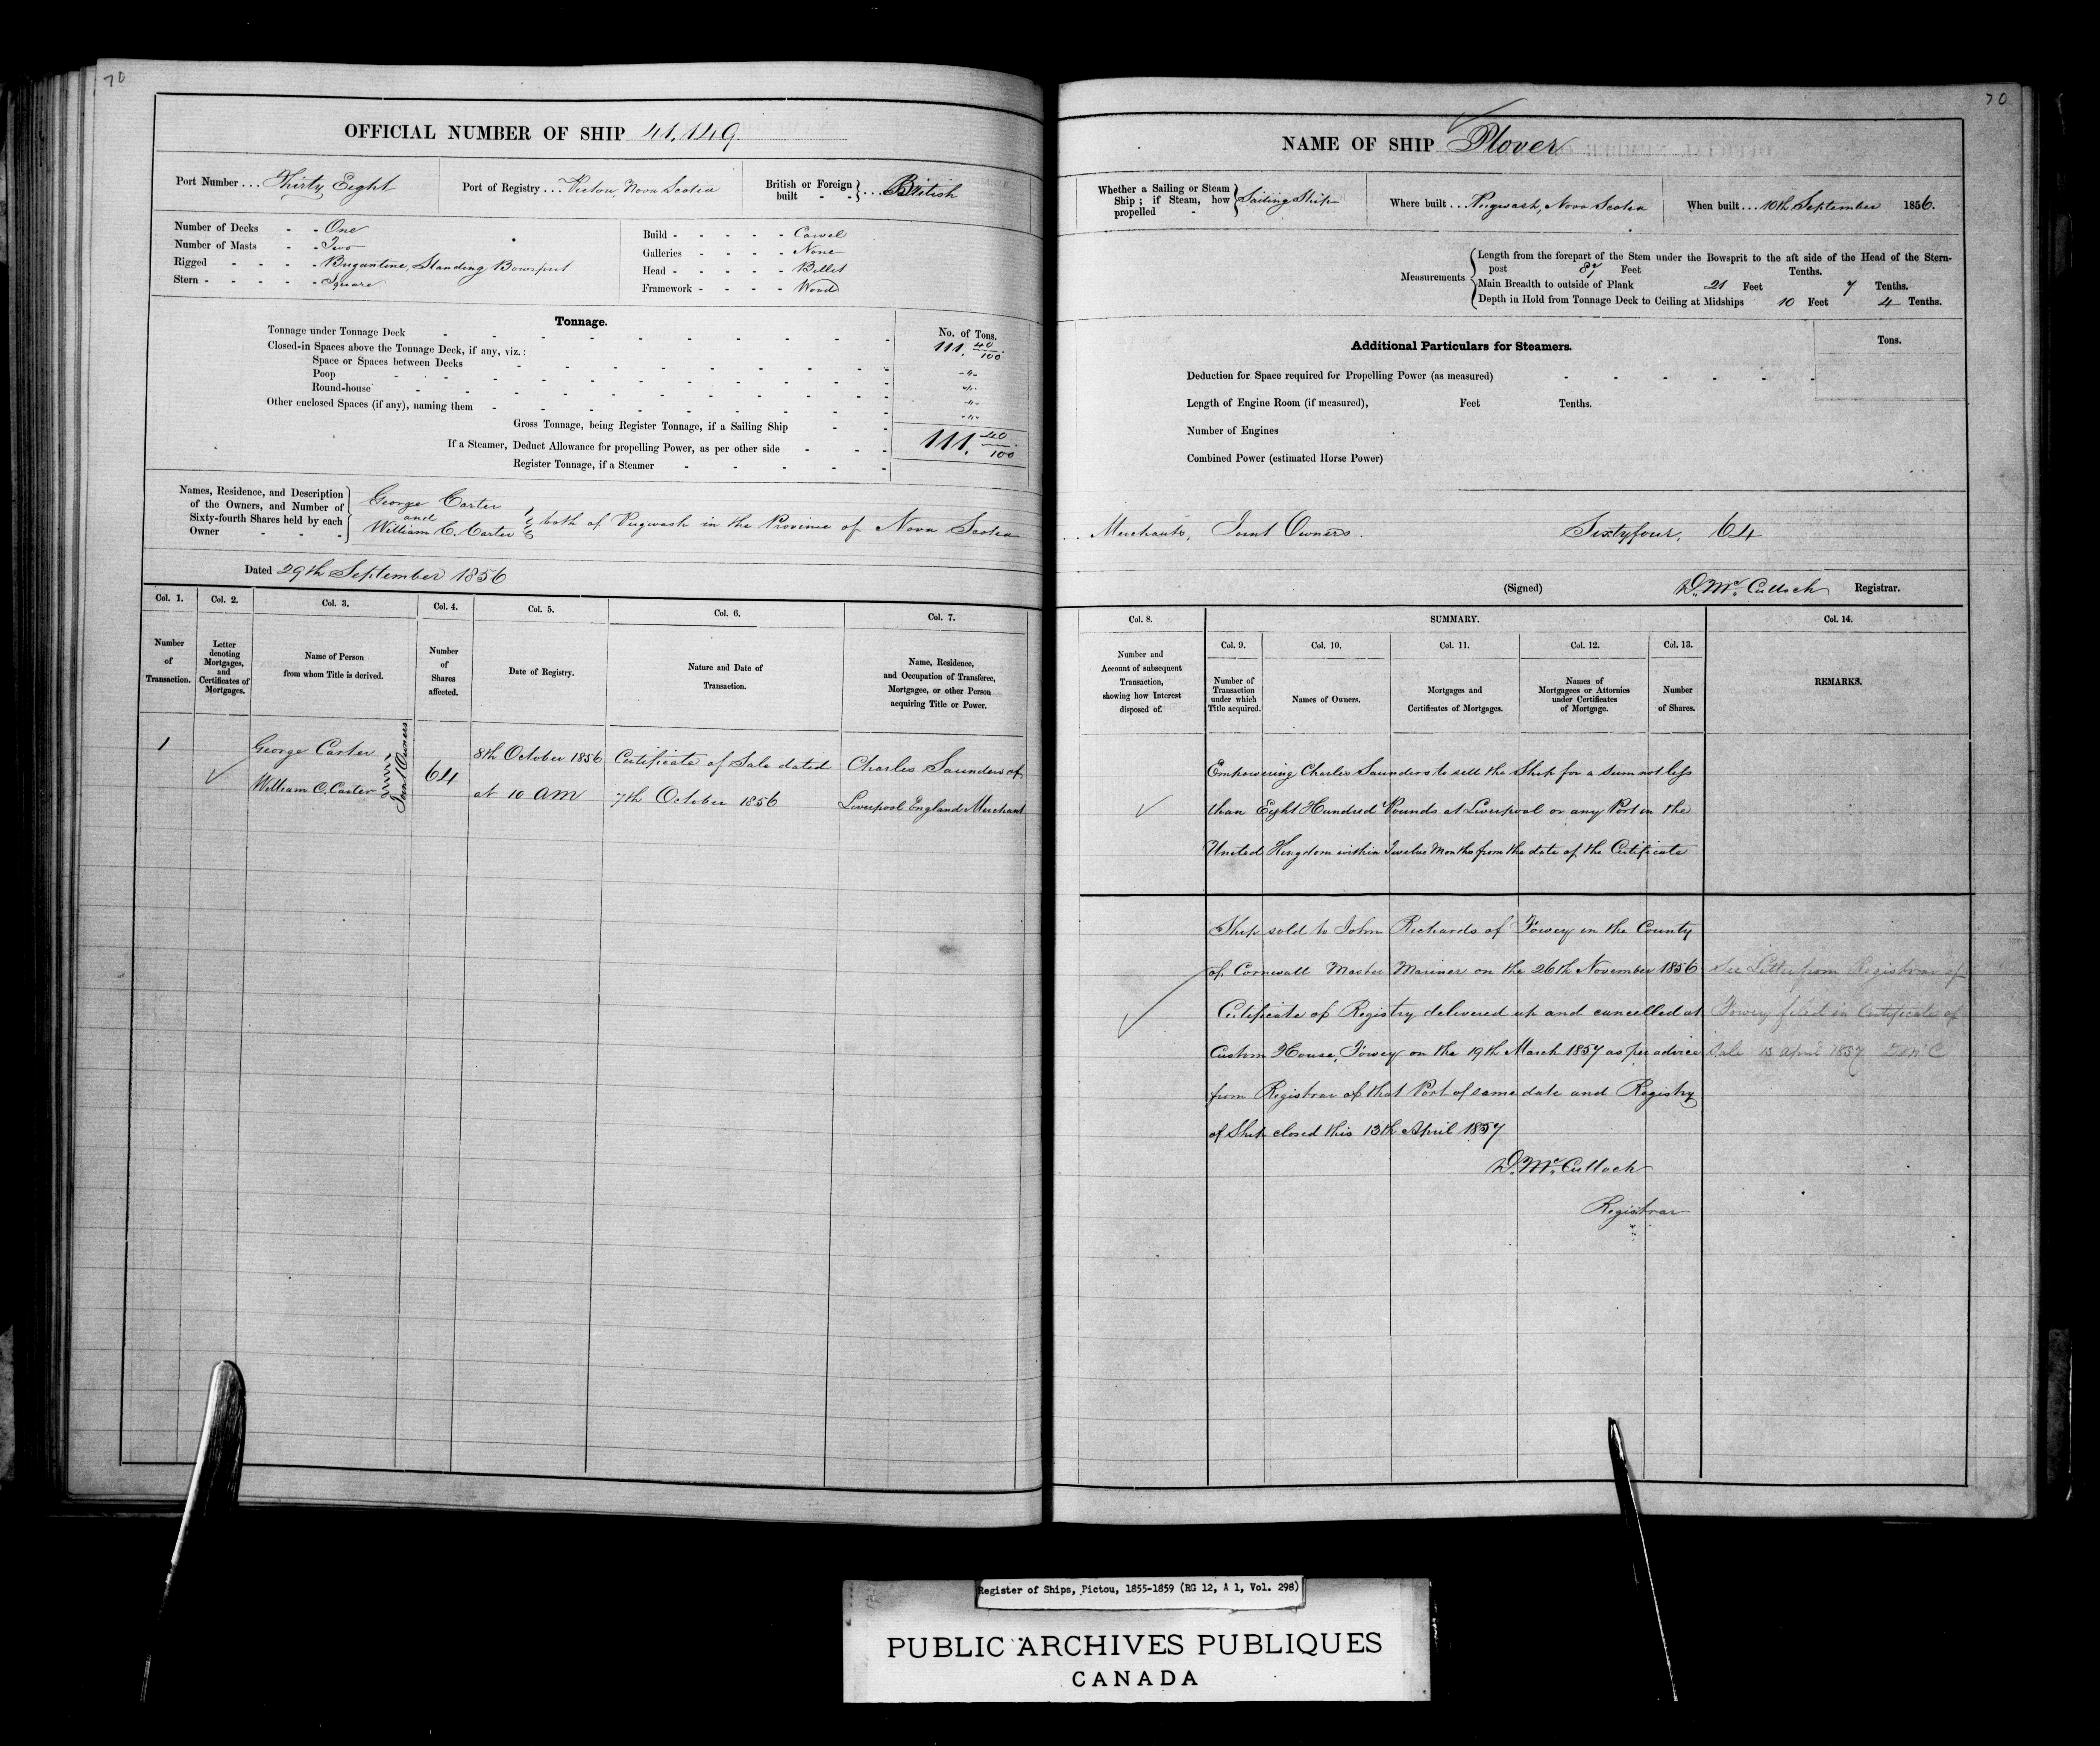 70
OFFICIAL NUMBER OF SHIP 41,149.
Port Number ... Thirty Eight
Port of Registry ... Pictou, Nova Scotia
British or Foreign built - - } ... British
Number of Decks - - One
Number of Masts - - Two
Rigged - - - - Brigantine, Standing Bowsprit
Stern - - - - - Square
Build - - - - - Carvel
Galleries - - - - None
Head - - - - - Billet
Framework - - - - Wood
Tonnage.
No. of Tons.
Tonnage under Tonnage Deck 111. 40/100
Closed-in Spaces above the Tonnage Deck, if any, viz.:
Space or Spaces between Decks -"-
Poop -"-
Round-house -"-
Other enclosed Spaces (if any), naming them -"-
Gross Tonnage, being Register Tonnage, if a Sailing Ship 111. 40/100
If a Steamer, Deduct Allowance for propelling Power, as per other side
Register Tonnage, if a Steamer
Names, Residence, and Description
of the Owners, and Number of
Sixty-fourth Shares held by each
Owner - - -
George Carter
and
William C. Carter } both of Pugwash in the Province of Nova Scotia
Dated 29th September 1856
Col. 1. Col. 2. Col. 3. Col. 4. Col. 5. Col. 6. Col. 7.
Number of Transaction.
Letter denoting Mortgages, and Certificates of Mortgages.
Name of Person from whom Title is derived.
Number of Shares affected.
Date of Registry.
Nature and Date of Transaction.
Name, Residence, and Occupation of Transferee, Mortgagee, or other Person acquiring Title or Power.
1 George Carter
William C. Carter
Joint Owners
64
8th October 1856
at 10 AM
Certificate of Sale dated
7th October 1856
Charles Saunders of
Liverpool England Merchant
70
NAME OF SHIP Plover
Whether a Sailing or Steam
Ship; if Steam, how
propelled - } Sailing Ship
Where built ... Pugwash, Nova Scotia
When built ... 10th September 1856.
Measurements
Length from the forepart of the Stem under the Bowsprit to the aft side of the Head of the Stern-
post 87 Feet Tenths.
Main Breadth to outside of Plank 21 Feet 7 Tenths.
Depth in Hold from Tonnage Deck to Ceiling at Midships 10 Feet 4 Tenths.
Additional Particulars for Steamers.
Tons.
Deduction for Space required for Propelling Power (as measured)
Length of Engine Room (if measured), Feet Tenths.
Number of Engines
Combined Power (estimated Horse Power)
Merchants, Joint Owners. Sixtyfour, 64
(Signed) D. McCulloch Registrar.
Col. 8. SUMMARY. Col. 14.
Col. 9. Col. 10. Col. 11. Col. 12. Col. 13.
Number and Account of subsequent Transaction, showing how Interest disposed of.
Number of Transaction under which Title acquired.
Names of Owners.
Mortgages and Certificates of Mortgages.
Names of Mortgagees or Attornies under Certificates of Mortgage.
Number of Shares.
REMARKS.
Empowering Charles Saunders to sell the Ship for a sum not less
than Eight Hundred Pounds at Liverpool or any Port in the
United Kingdom within Twelve Months from the date of the Certificate
Ship sold to John Richards of Fowey in the County
of Cornwall Master Mariner on the 26th November 1856
Certificate of Registry delivered up and cancelled at
Custom House, Fowey on the 19th March 1857 as per advice
from Registrar of that Port of same date and Registry
of Ship closed this 13th April 1857
D. McCulloch
Registrar
See Letter from Registrar of
Fowey filed in Certificate of
Sale 13 April 1857 D McC
Register of Ships, Pictou, 1855-1859 (RG 12, A 1, Vol. 298)
PUBLIC ARCHIVES PUBLIQUES
CANADA